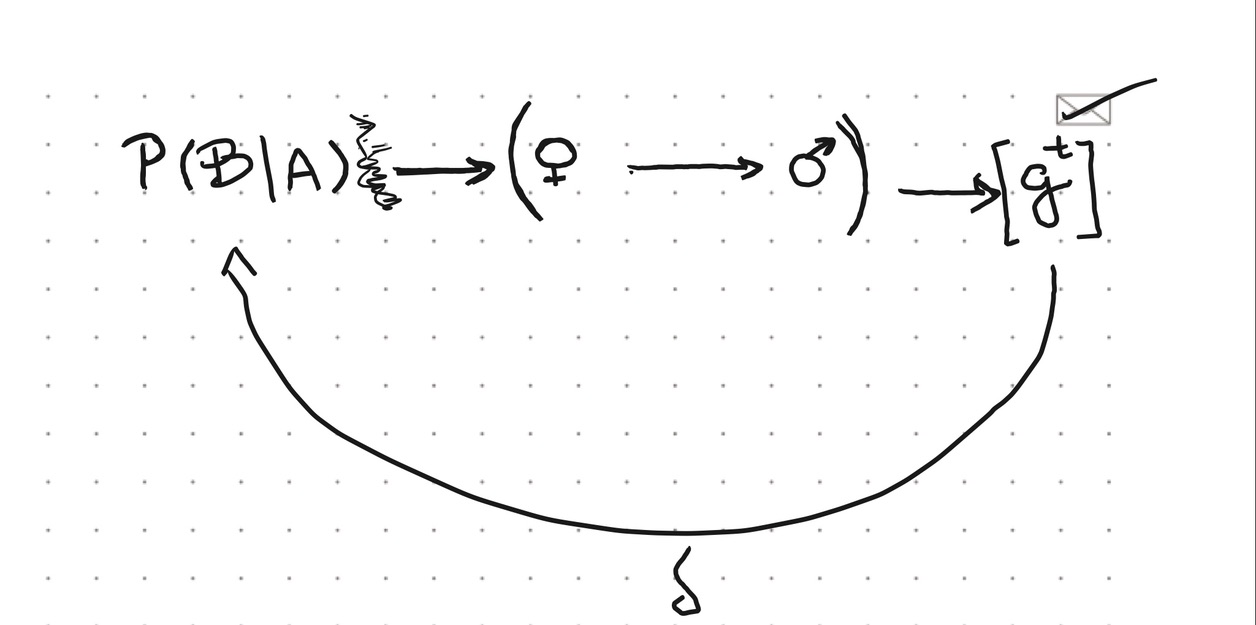 P(B|A) → (♀ → ♂) → [g^t]
δ